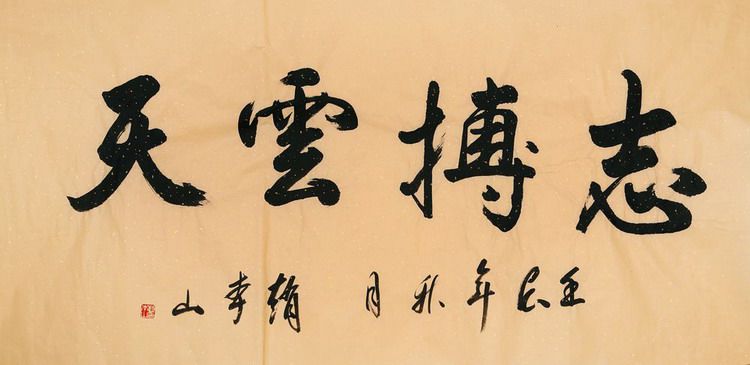 志搏雲天
壬辰年秋月 李山